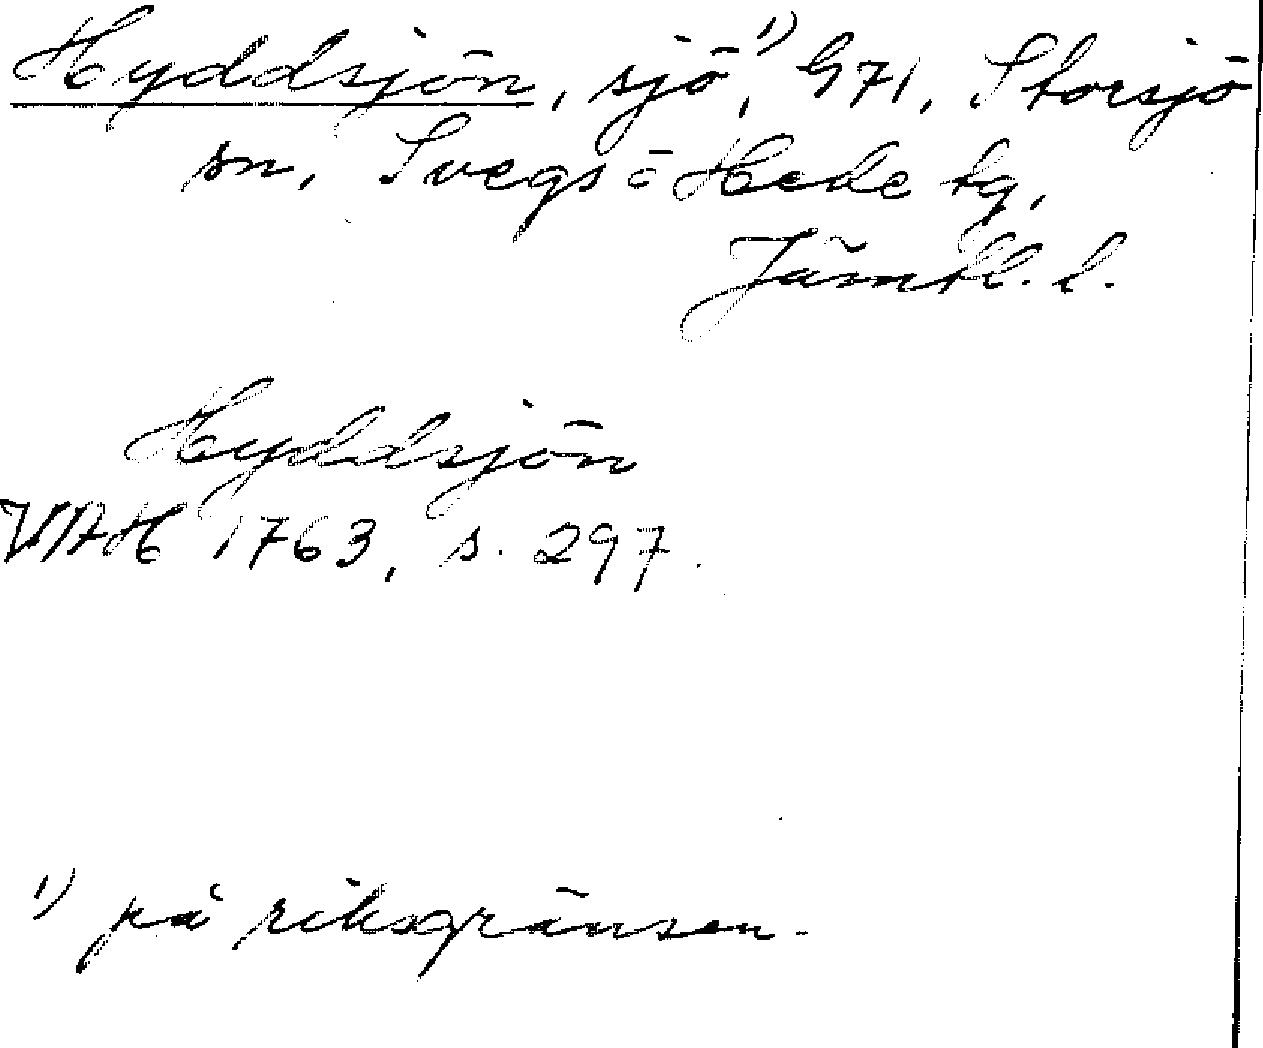 Hyddsjön, sjö,¹⁾ 471, Storsjö
sn, Svegs o Hede tg,
Jämtl. l.
Hyddsjön
VAH 1763, s. 297.
¹⁾ på riksgränsen.